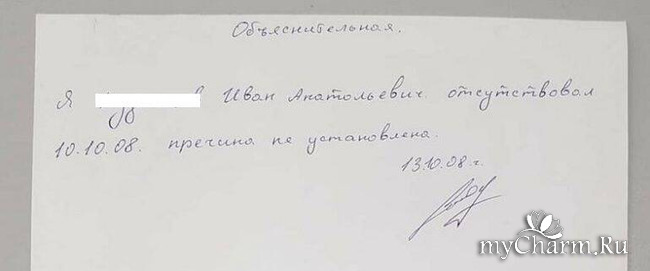 Объяснительная.
Я Иван Анатольевич отсутствовал
10.10.08. пречина не установлена.
13.10.08 г.
myCharm.Ru